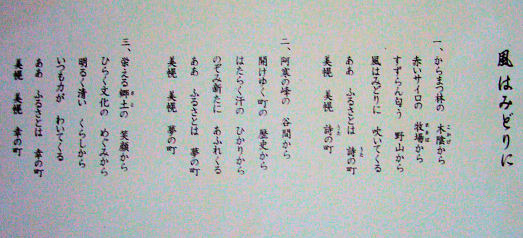 風はみどりに
一、からまつ林の 木陰から
赤いサイロの 牧場から
すずらん匂う 野山から
風はみどりに 吹いてくる
ああ ふるさとは 詩の町
美幌 美幌 詩の町
二、阿寒の峰の 谷間から
開けゆく町の 歴史から
はたらく汗の ひかりから
のぞみ新たに あふれくる
ああ ふるさとは 夢の町
美幌 美幌 夢の町
三、栄える郷土の 笑顔から
ひらく文化の めぐみから
明るく清い くらしから
いつも力が わいてくる
ああ ふるさとは 幸の町
美幌 美幌 幸の町